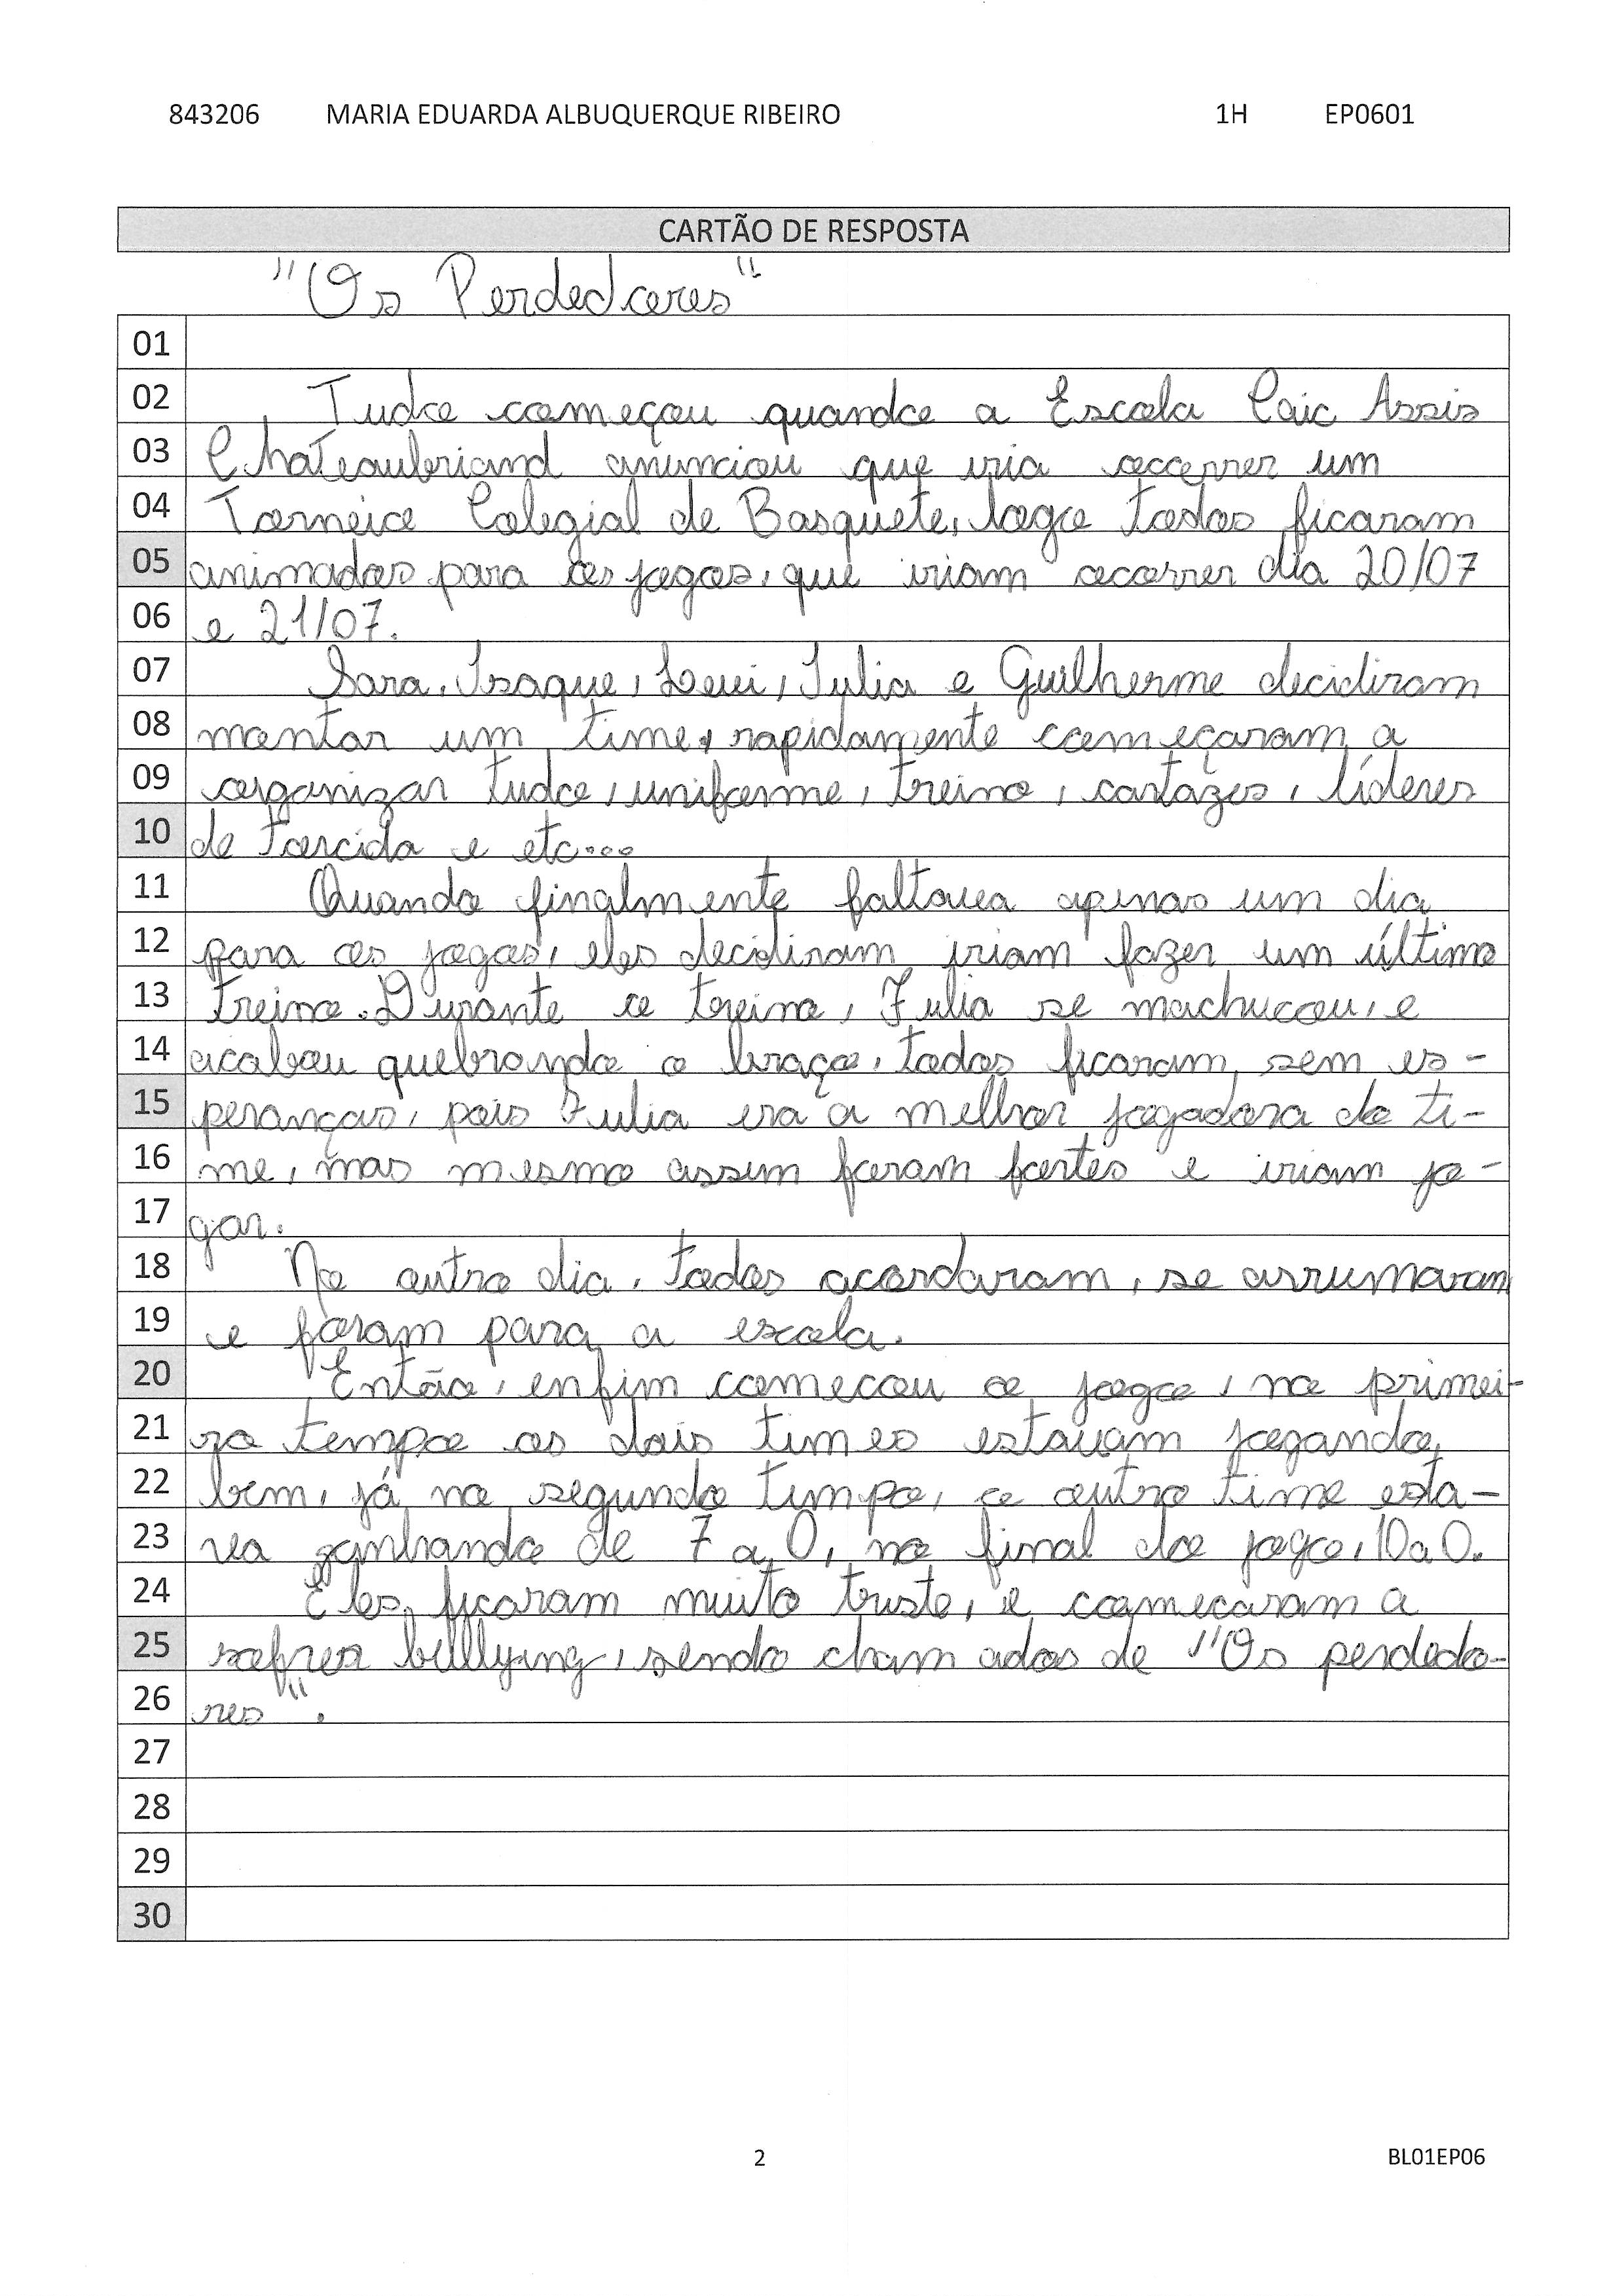 843206 MARIA EDUARDA ALBUQUERQUE RIBEIRO 1H EP0601
CARTÃO DE RESPOSTA
"Os Perdedores"
01
02 Tudo começou quando a Escola Caic Assis
03 Chateaubriand anunciou que iria ocorrer um
04 Torneio Colegial de Basquete, logo todos ficaram
05 animados para os jogos, que iriam ocorrer dia 20/07
06 e 21/07.
07 Sara, Isaque, Levi, Julia e Guilherme decidiram
08 montar um time, rapidamente começaram a
09 organizar tudo, uniforme, treino, cartazes, líderes
10 de torcida e etc...
11 Quando finalmente faltava apenas um dia
12 para os jogos, eles decidiram iriam fazer um último
13 treino. Durante o treino, Julia se machucou, e
14 acabou quebrando o braço, todos ficaram sem es-
15 peranças, pois Julia era a melhor jogadora do ti-
16 me, mas mesmo assim foram fortes e iriam jo-
17 gar.
18 No outro dia, todos acordaram, se arrumaram
19 e foram para a escola.
20 Então, enfim comecou o jogo, no primei-
21 ro tempo os dois times estavam jogando
22 bem, já no segundo tempo, o outro time esta-
23 va ganhando de 7 a 0, no final do jogo, 10 a 0.
24 Eles ficaram muito triste, e comecaram a
25 sofrer bullying, sendo chamados de "Os perdedo-
26 res".
27
28
29
30
2 BL01EP06